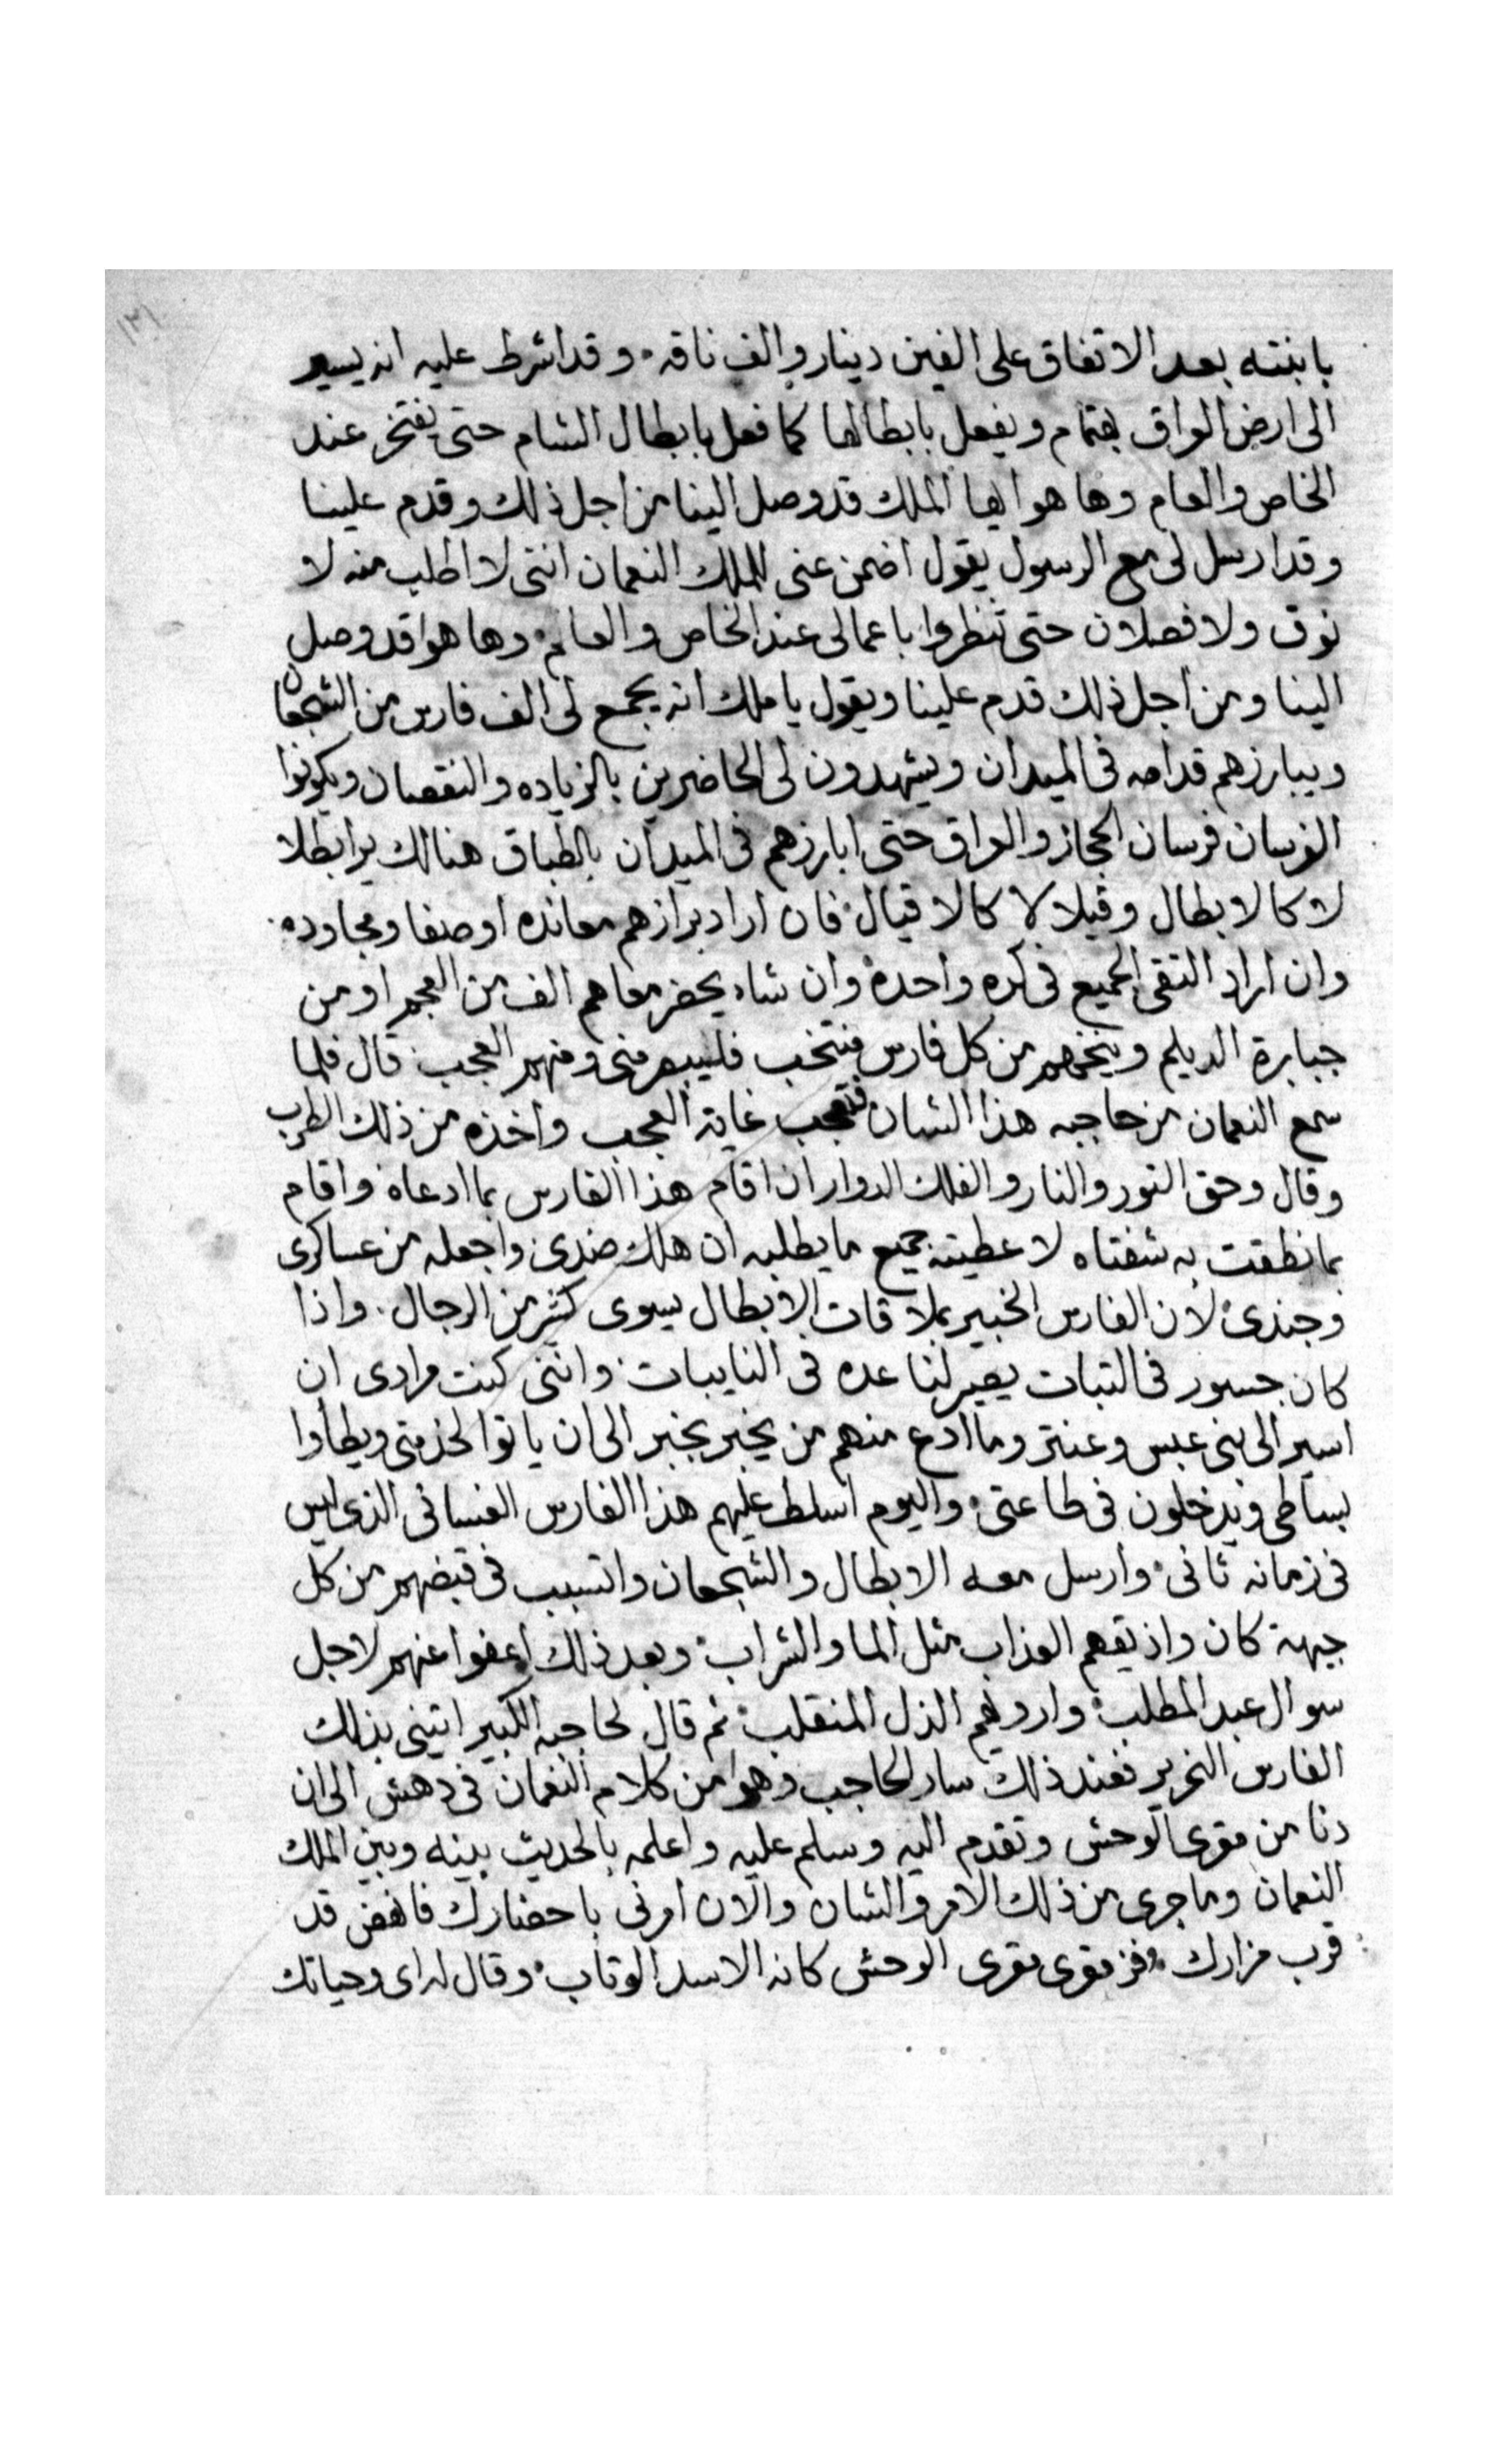 ١٣١
بابنته بعد الاتفاق على الفين دينار والف ناقه وقد اشرط عليه انه يسير
الى ارض العراق بهتمام ويفعل بابطالها كما فعل بابطال الشام حتى يفتخر عند
الخاص والعام وها هو ايها الملك قد وصل الينا من اجل ذلك وقدم علينا
وقد ارسل لى مع الرسول يقول اضمن عنى للملك النعمان اننى لا اطلب منه لا
نوق ولا فصلان حتى تنظروا باعمالى عند الخاص والعام وها هوا قد وصل
الينا ومن اجل ذلك قدم علينا ويقول يا ملك انه يجمع لى الف فارس من الشجعان
ويبارزهم قدامه فى الميدان ويشهدون لى الحاضرين بالزياده والنقصان ويكونوا
الفرسان فرسان الحجاز والعراق حتى ابارزهم فى الميدان بالطباق هنالك يرا بطلا
لا كالابطال وقيلا لا كالاقيال فان اراد برازهم معانده او صفا ومجاوده
وان اراد التقى الجميع فى كره واحدة وان شاء يحضر معاهم الف من العجم او من
جبابرة الديلم وينخبهم من كل فارس منتخب فليبصر منى ومنهم العجب قال فلما
سمع النعمان من حاجبه هذا الشان فتعجب غاية العجب واخذه من ذلك الطرب
وقال وحق النور والنار والفلك الدوار ان اقام هذا الفارس بما ادعاه واقام
بما نطقت به شفتاه لاعطيته جميع ما يطلبه ان هلك ضدى واجعله من عساكرى
وجندى لان الفارس الخبير بملاقات الابطال يسوى كثير من الرجال واذا
كان جسور فى التبات يصير لنا عده فى النايبات واننى كنت مرادى ان
اسير الى بنى عبس وعنتر وما ادع منهم من يخبر بخبر الى ان ياتوا لخدمتى ويطاوا
بساطى ويدخلون فى طاعتى واليوم اسلط عليهم هذا الفارس الغسانى الذى ليس
فى زمانه ثانى وارسل معه الابطال والشجعان واتسبب فى قبضهم من كل
جيهة كان واذيقهم العذاب مثل الما والشراب وبعد ذلك اعفوا عنهم لاجل
سوال عبد المطلب واورهم الذل المنقلب ثم قال لحاجبه الكبير ايتينى بذلك
الفارس النحرير فعند ذلك سار الحاجب وهوا من كلام النعمان فى دهش الى ان
دنا من مقرى الوحش وتقدم اليه وسلم عليه واعلمه بالحديث بينه وبين الملك
النعمان وما جرى من ذلك الامر والشان والان امرنى باحضارك فانهض قد
قرب مزارك فز مقرى مقرى الوحش كانه الاسد الوتاب وقال له اى وحياتك